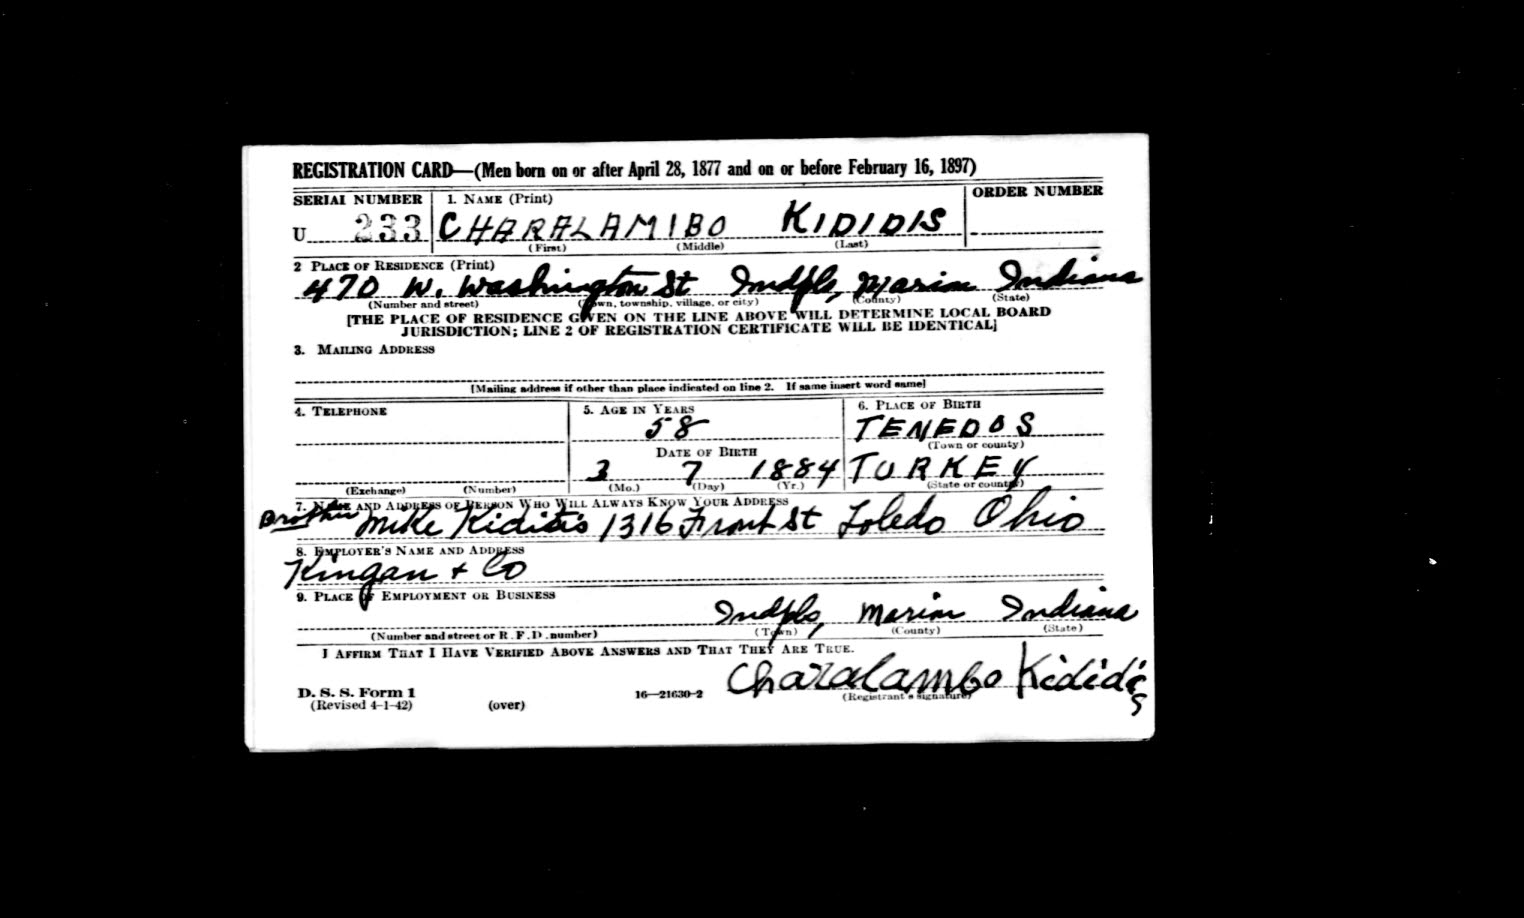 REGISTRATION CARD—(Men born on or after April 28, 1877 and on or before February 16, 1897)
SERIAL NUMBER 1. NAME (Print) ORDER NUMBER
U 233 CHARALAMIBO KIDIDIS
(First) (Middle) (Last)
2 PLACE OF RESIDENCE (Print)
470 W. Washington St Indpls, Marion Indiana
(Number and street) (Town, township, village, or city) (County) (State)
[THE PLACE OF RESIDENCE GIVEN ON THE LINE ABOVE WILL DETERMINE LOCAL BOARD
JURISDICTION; LINE 2 OF REGISTRATION CERTIFICATE WILL BE IDENTICAL]
3. MAILING ADDRESS
[Mailing address if other than place indicated on line 2. If same insert word same]
4. TELEPHONE 5. AGE IN YEARS 6. PLACE OF BIRTH
58 TENEDOS
(Town or county)
DATE OF BIRTH
3 7 1884 TURKEY
(Exchange) (Number) (Mo.) (Day) (Yr.) (State or country)
7. NAME AND ADDRESS OF PERSON WHO WILL ALWAYS KNOW YOUR ADDRESS
Brother Mike Kiditis 1316 Front St Toledo Ohio
8. EMPLOYER'S NAME AND ADDRESS
Kingan + Co
9. PLACE OF EMPLOYMENT OR BUSINESS
Indpls, Marion Indiana
(Number and street or R. F. D. number) (Town) (County) (State)
I AFFIRM THAT I HAVE VERIFIED ABOVE ANSWERS AND THAT THEY ARE TRUE.
Charalambo Kididis
D. S. S. Form 1 16—21630-2 (Registrant's signature)
(Revised 4-1-42) (over)